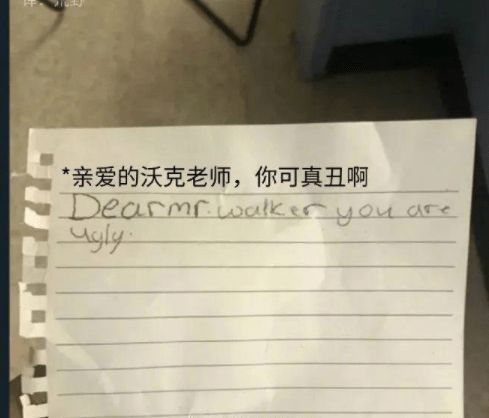 *亲爱的沃克老师，你可真丑啊
Dear mr. walker you are
ugly.